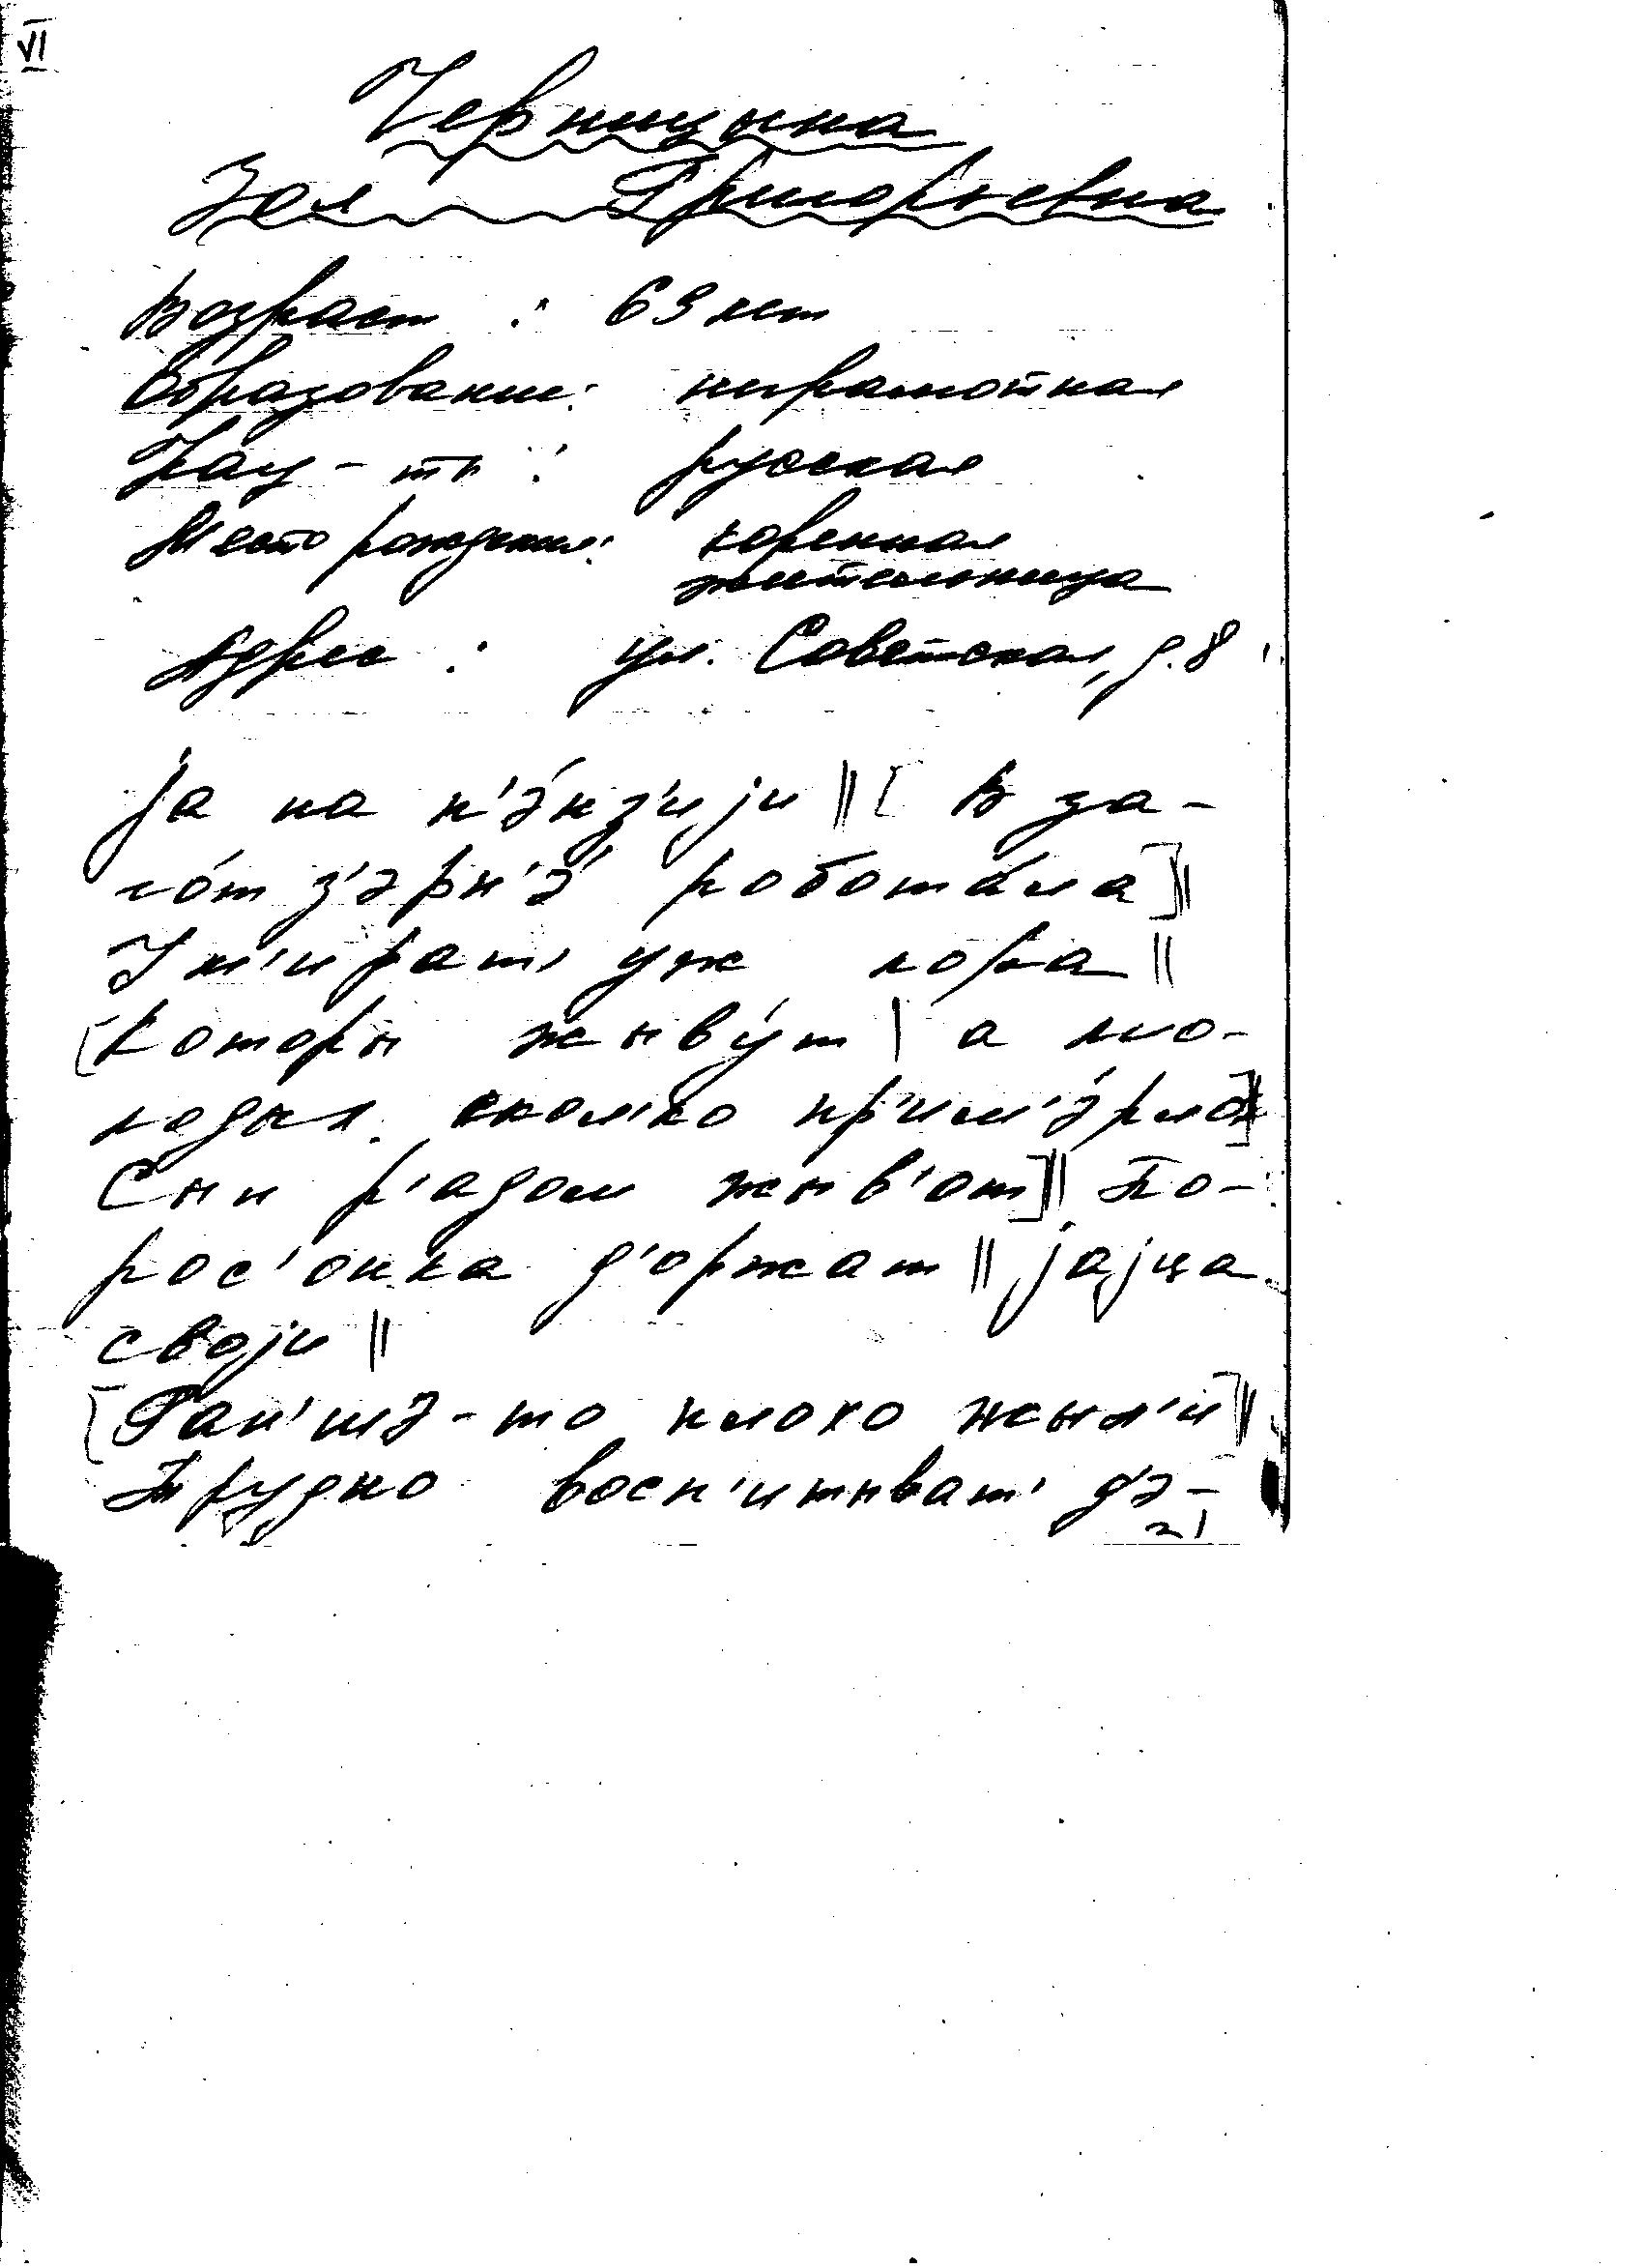 VI
Зоя Григорьевна
Возраст : 69 лет
Образование: неграмотная
Нац-ть : русская
Место рождения: коренная
жительница
Адрес : ул. Советская, д. 8
Jа на п'э́нз'иjи || [ В за-
го́т з'эрн'э́ роботáла ] ||
Ум'ират' уж пора ||
[ Которы жыву́т | а мо-
лодых скол'ко пр'им'э́рло ] ||
Сын р'адом жыв'от ] || По-
рос'онка д'оржат || jаjца
своjи ||
[ Ран'шэ-то плохо жыл'и ] ||
Трудно восп'итыват' дэ-
21